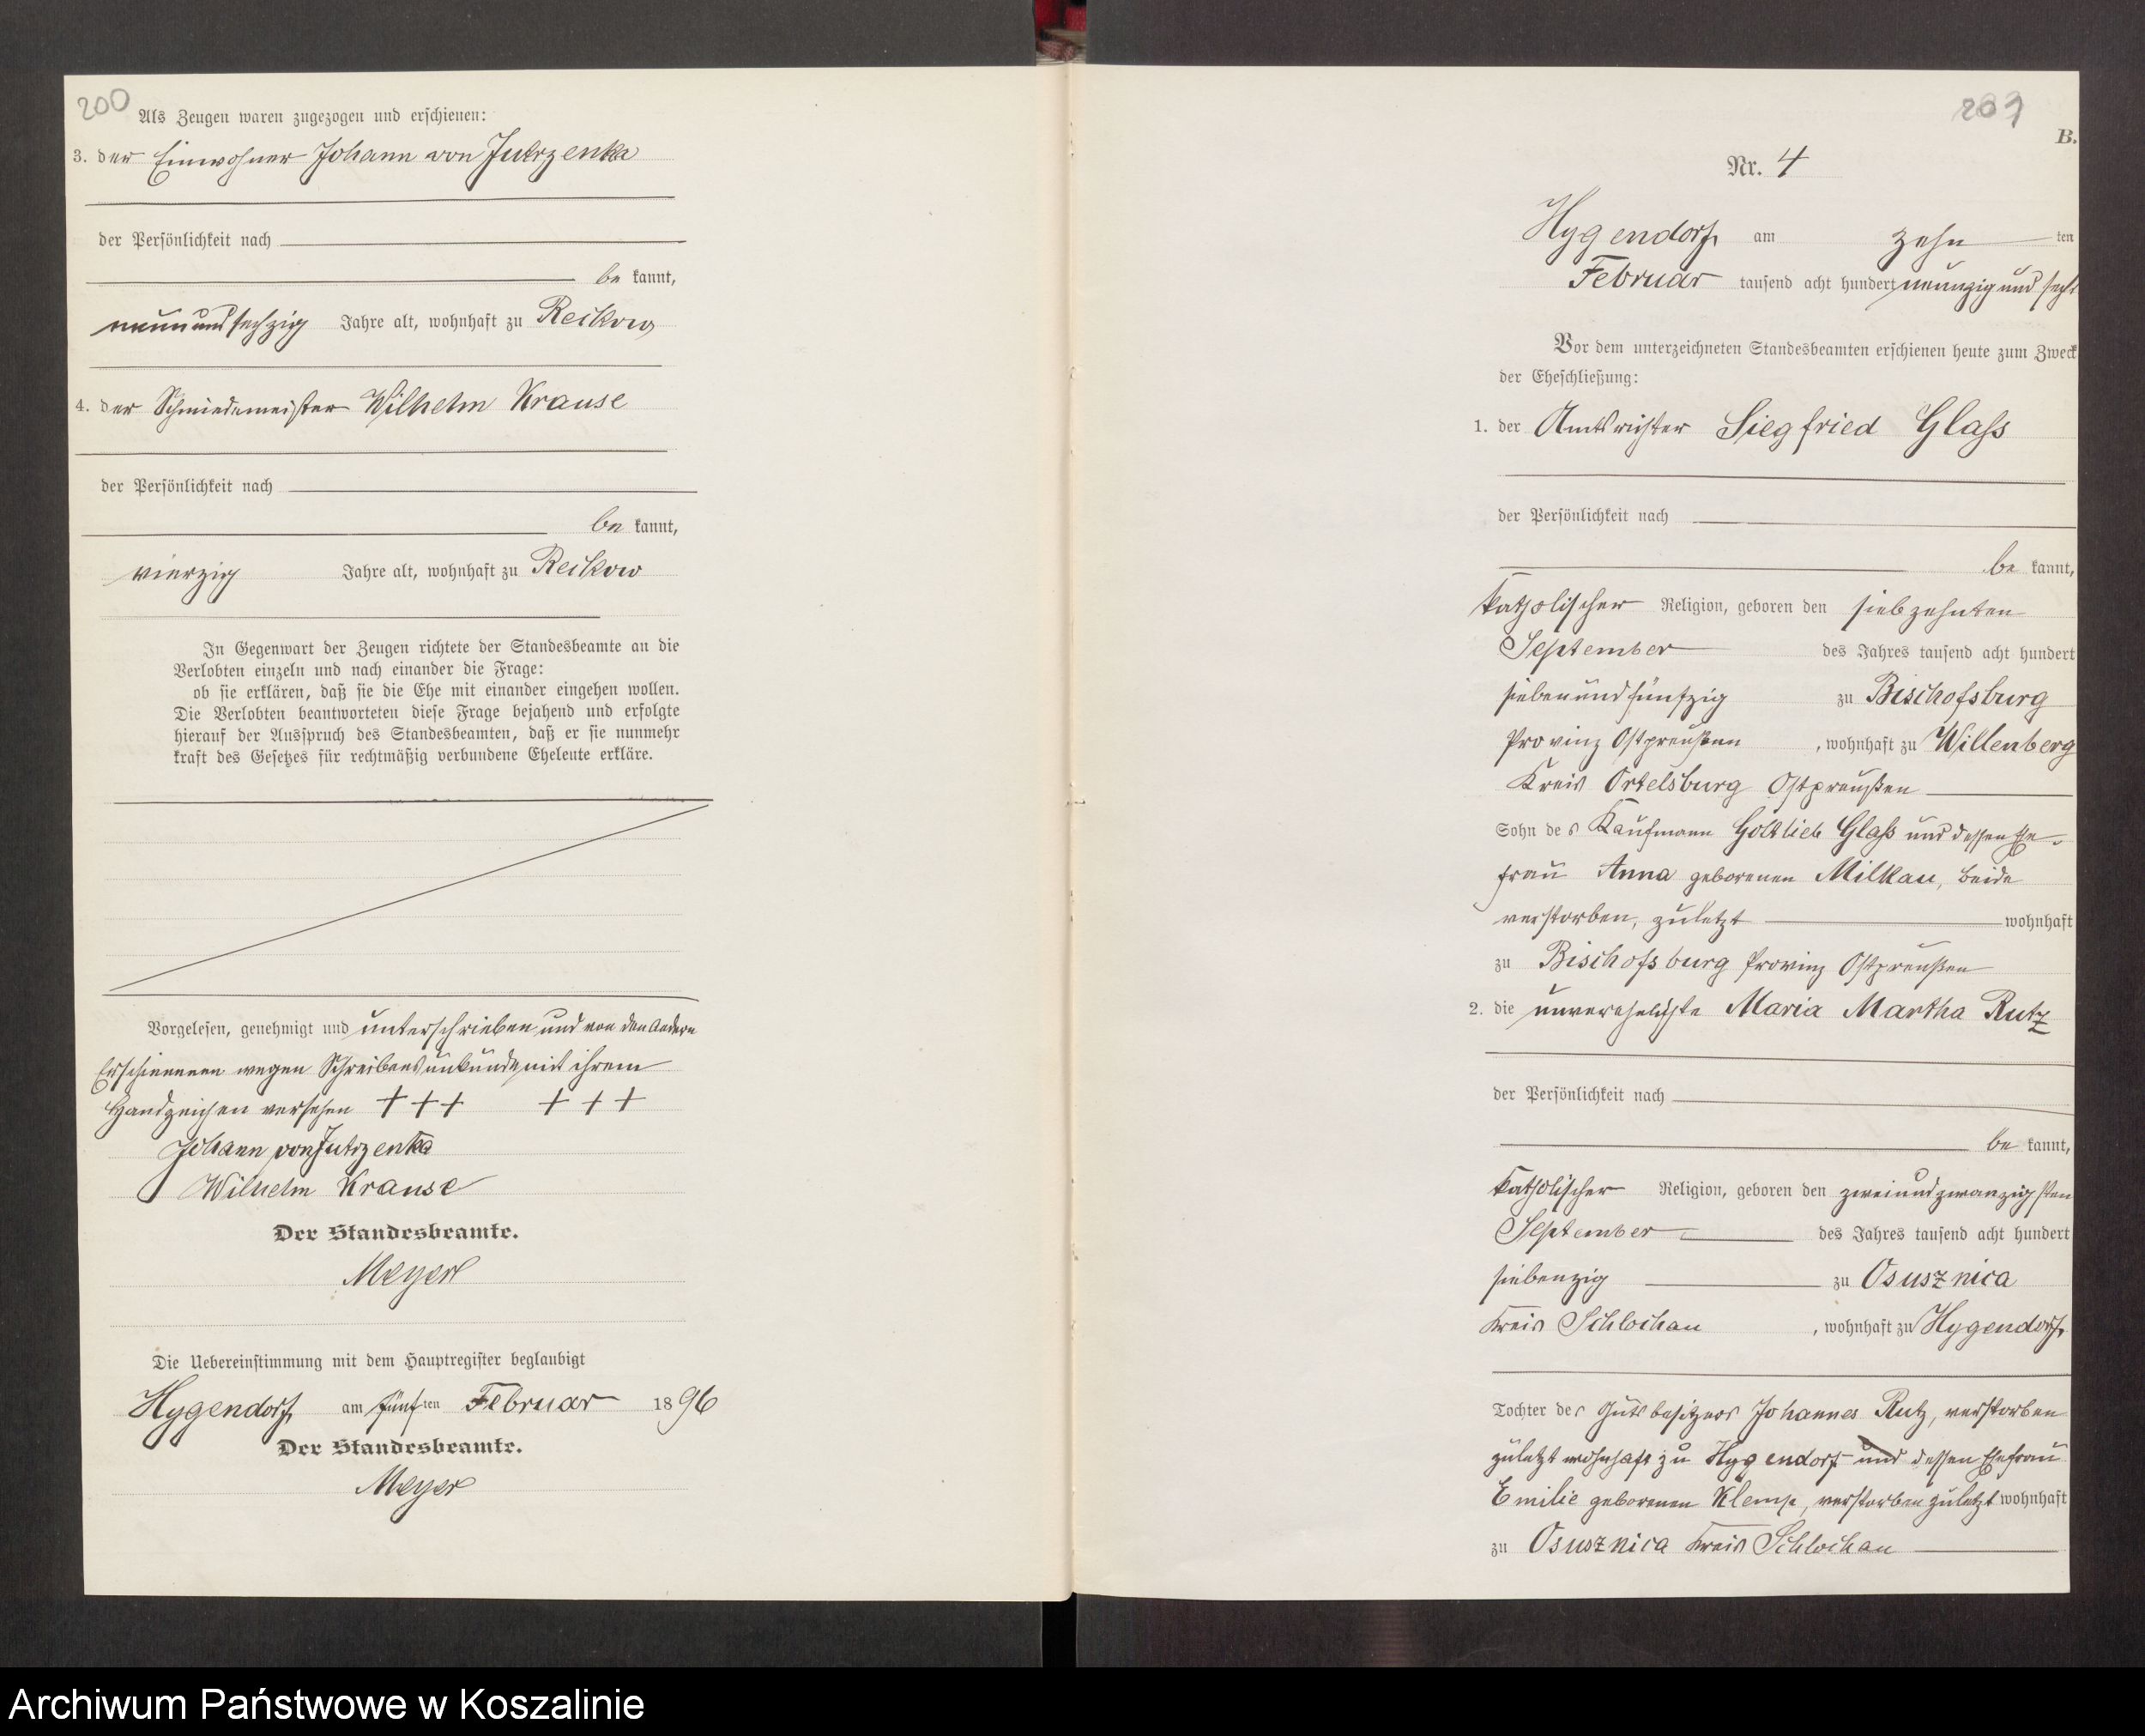 200
Als Zeugen waren zugezogen und erschienen:
3. der Einwohner Johann von Jutrzenka
der Persönlichkeit nach
be kannt,
neunundsechzig Jahre alt, wohnhaft zu Reikow
4. der Schmiedemeister Wilhelm Krause
der Persönlichkeit nach
be kannt,
vierzig Jahre alt, wohnhaft zu Reikow
In Gegenwart der Zeugen richtete der Standesbeamte an die
Verlobten einzeln und nach einander die Frage:
ob sie erklären, daß sie die Ehe mit einander eingehen wollen.
Die Verlobten beantworteten diese Frage bejahend und erfolgte
hierauf der Ausspruch des Standesbeamten, daß er sie nunmehr
kraft des Gesetzes für rechtmäßig verbundene Eheleute erkläre.
Vorgelesen, genehmigt und unterschrieben und von den Andern
Erschienenen wegen Schreibensunkunde mit ihrem
Handzeichen versehen +++ +++
Johann von Jutrzenka
Wilhelm Krause
Der Standesbeamte.
Meyer
Die Uebereinstimmung mit dem Hauptregister beglaubigt
Hygendorf am fünf ten Februar 1896
Der Standesbeamte.
Meyer
B.
Nr. 4
Hygendorf am zehn ten
Februar tausend acht hundert neunzig und sechs
Vor dem unterzeichneten Standesbeamten erschienen heute zum Zweck
der Eheschließung:
1. der Amtsrichter Siegfried Glaß
der Persönlichkeit nach
be kannt,
katholischer Religion, geboren den siebzehnten
September des Jahres tausend acht hundert
siebenundfünfzig zu Bischofsburg
Provinz Ostpreußen, wohnhaft zu Willenberg
Kreis Ortelsburg Ostpreußen
Sohn des Kaufmann Gottlieb Glaß und dessen Ehe-
frau Anna geborenen Milkau, beide
verstorben, zuletzt wohnhaft
zu Bischofsburg Provinz Ostpreußen
2. die unverehelichte Maria Martha Rutz
der Persönlichkeit nach
be kannt,
katholischer Religion, geboren den zweiundzwanzigsten
September des Jahres tausend acht hundert
siebenzig zu Osusznica
Kreis Schlochau, wohnhaft zu Hygendorf
Tochter des Gutsbesitzers Johannes Rutz, verstorben
zuletzt wohnhaft zu Hygendorf und dessen Ehefrau
Emilie geborenen Klemp, verstorben zuletzt wohnhaft
zu Osusznica Kreis Schlochau
Archiwum Państwowe w Koszalinie